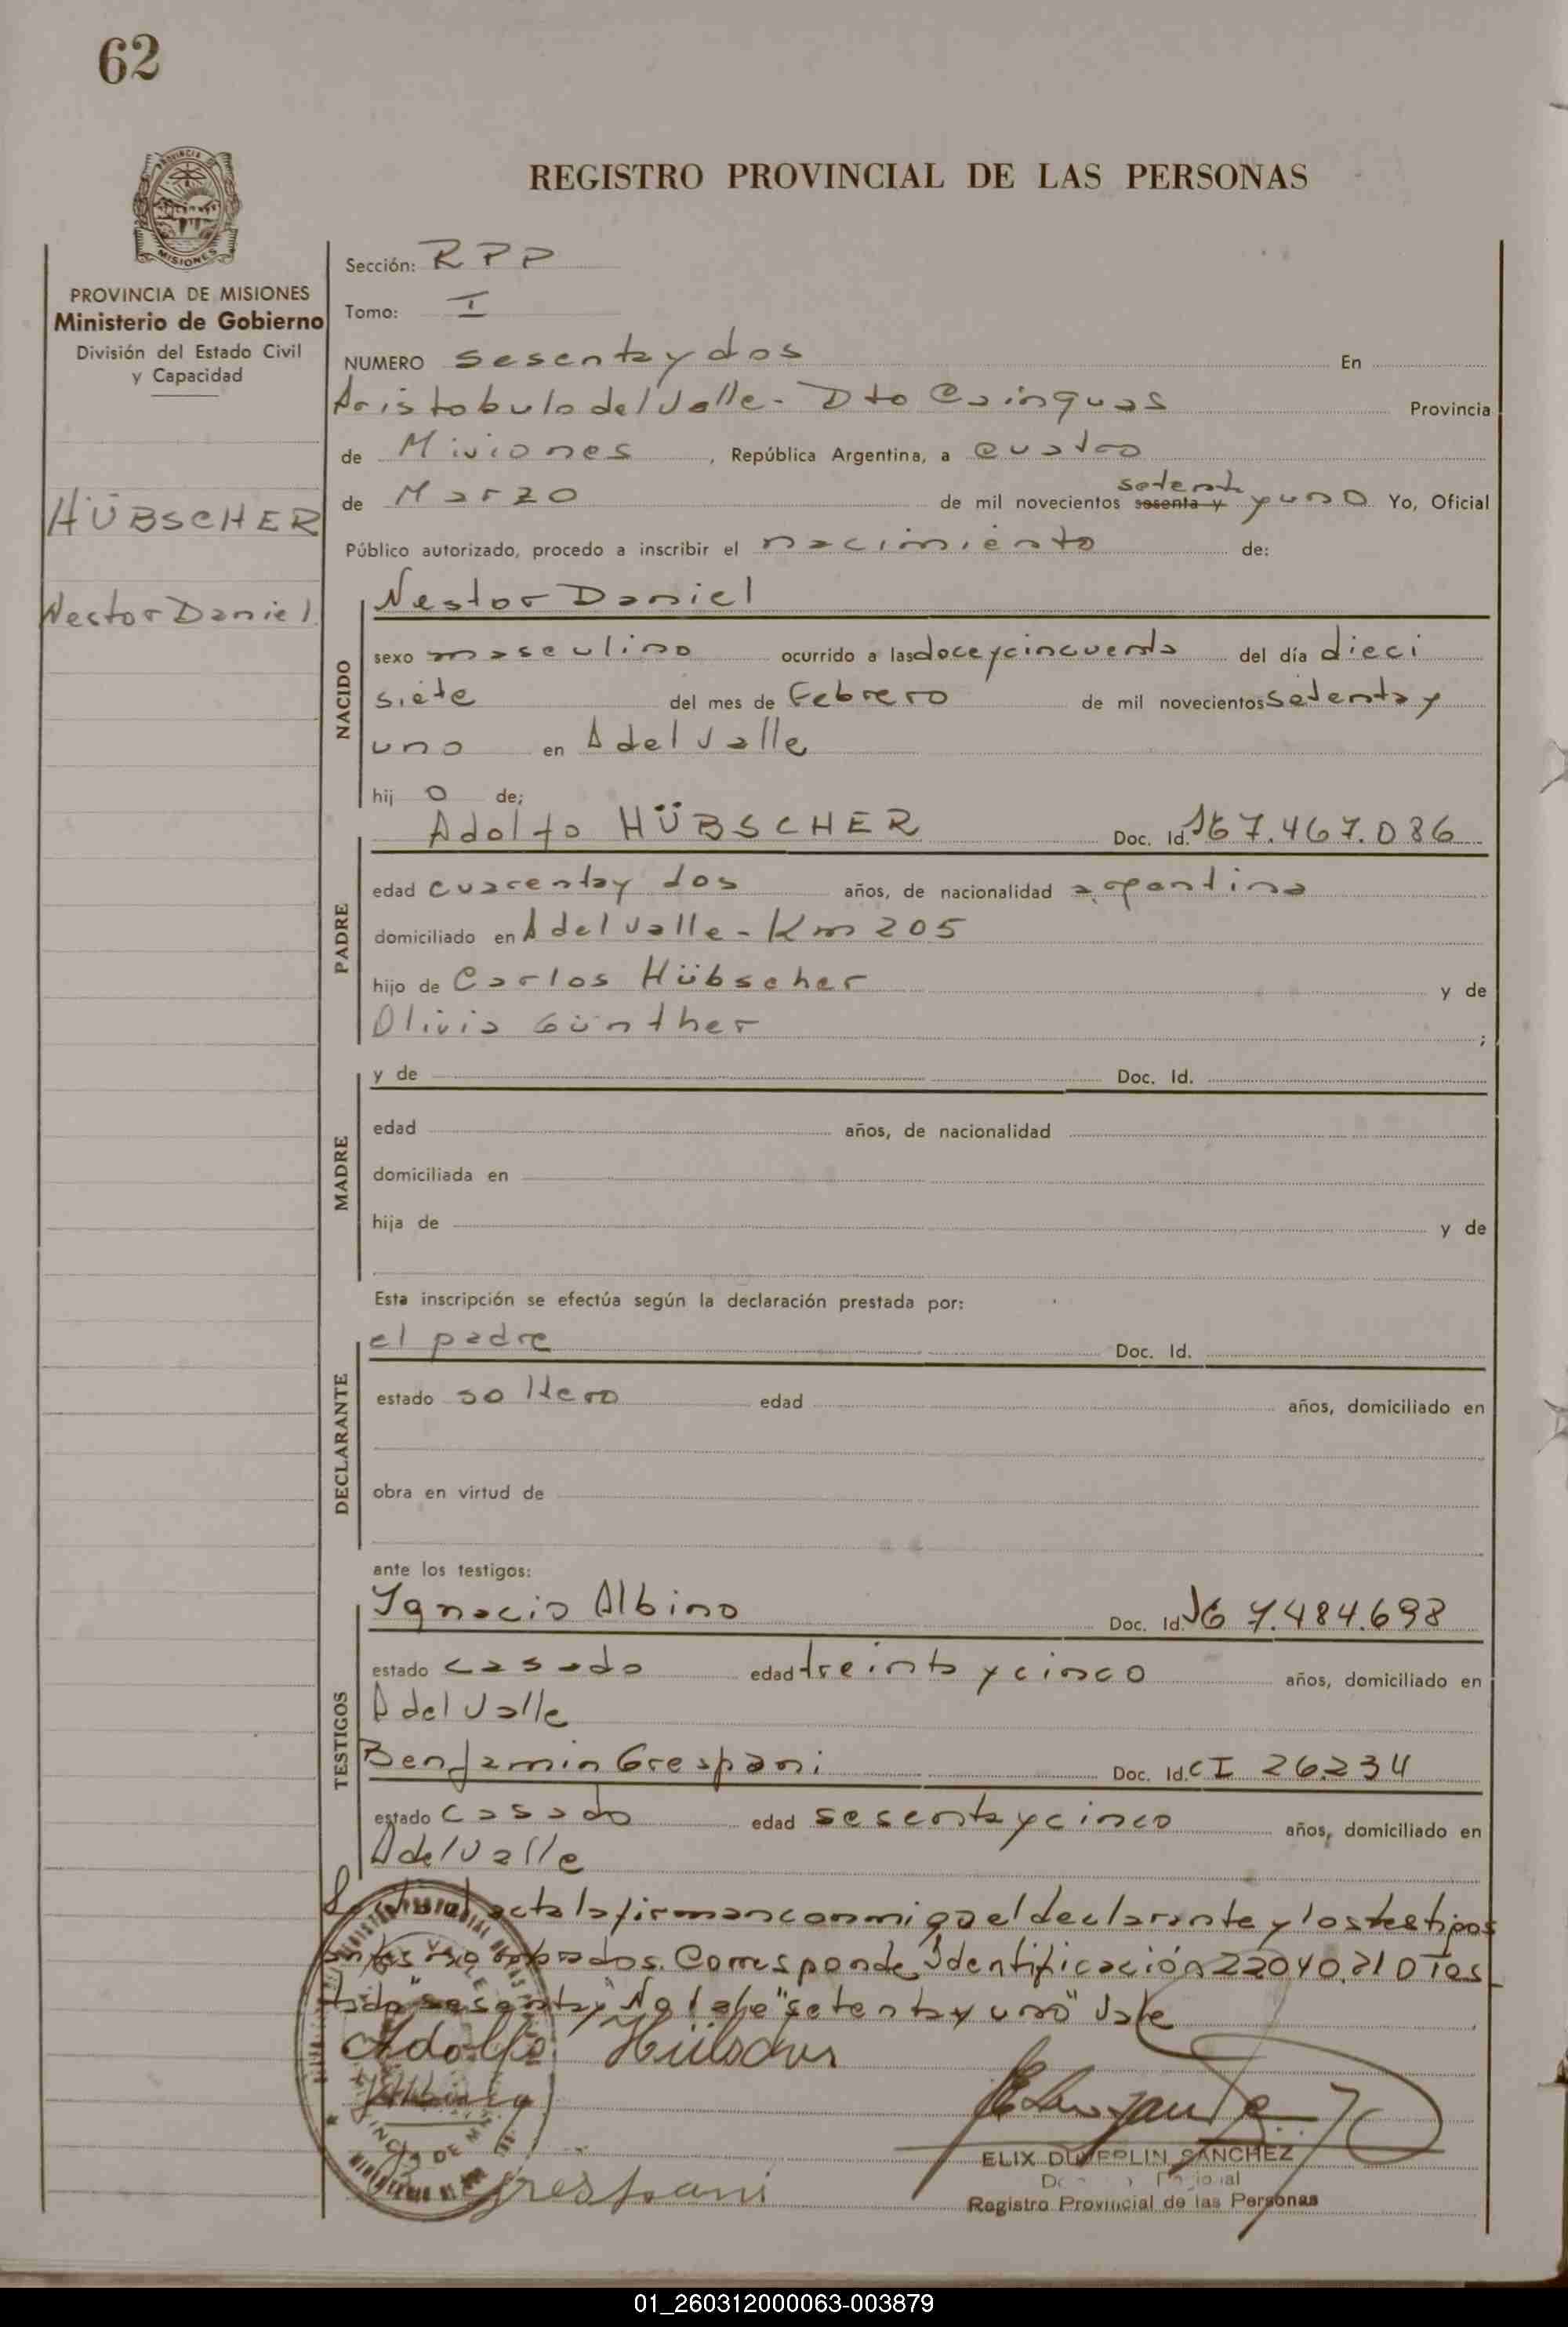 62
REGISTRO PROVINCIAL DE LAS PERSONAS
PROVINCIA DE MISIONES
Ministerio de Gobierno
División del Estado Civil
y Capacidad
HÜBSCHER
Nestor Daniel
Sección: RPP
Tomo: I
NUMERO sesenta y dos En
Aristobulo del Valle - Dto Cainguas Provincia
de Misiones, República Argentina, a cuatro
setenta
de Marzo de mil novecientos sesenta y y uno Yo, Oficial
Público autorizado, procedo a inscribir el nacimiento de:
NACIDO
Nestor Daniel
sexo masculino ocurrido a las doce y cincuenta del día dieci
siete del mes de Febrero de mil novecientos setenta y
uno en A del Valle
hij o de;
PADRE
Adolfo HÜBSCHER Doc. Id. 167.467.086
edad cuarenta y dos años, de nacionalidad argentina
domiciliado en A del Valle - Km 205
hijo de Carlos Hübscher y de
Olivia Günther ;
MADRE
y de Doc. Id.
edad años, de nacionalidad
domiciliada en
hija de y de
Esta inscripción se efectúa según la declaración prestada por:
DECLARANTE
el padre Doc. Id.
estado soltero edad años, domiciliado en
obra en virtud de
ante los testigos:
TESTIGOS
Ignacio Albino Doc. Id. 7.484.698
estado casado edad treinta y cinco años, domiciliado en
A del Valle
Benjamin Crespani Doc. Id. CI 26.234
estado casado edad sesenta y cinco años, domiciliado en
A del Valle
acta la firman conmigo el declarante y los testigos
Corresponde Identificación 22040.210 Tes
tado "sesenta y" "setenta y uno" Vale
Adolfo Hübscher
Crespani
ELIX DUVERLIN SANCHEZ
Registro Provincial de las Personas
01_260312000063-003879